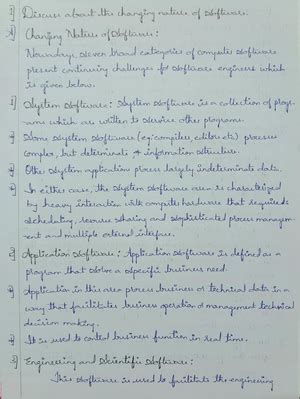 Discuss about the changing nature of software.
Changing Nature of Software:
Nowadays, seven broad categories of computer software
present continuing challenges for software engineers which
is given below.
System Software: System software is a collection of progr-
ams which are written to service other programs.
Some system software (eg: compilers, editors etc) processes
complex, but determinate information structure.
Other system application process largely indeterminate data.
In either case, the system software area is characterized
by heavy interaction with computer hardware that requires
scheduling, resource sharing and sophisticated process managem-
ent and multiple external interface.
Application Software: Application software is defined as a
program that solve a specific business need.
Application in this area process business or technical data in a
way that facilitates business operation or management technical
decision making.
It is used to control business function in real time.
Engineering and Scientific Software:
This software is used to facilitate the engineering